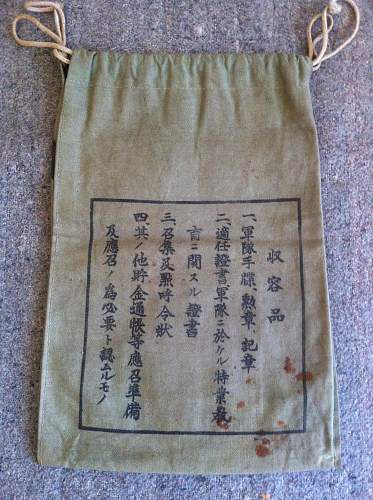 収容品
一、軍隊手牒、勲章、記章
二、適任證書、軍隊ニ於ケル特業教
育ニ関スル證書
三、召集及點呼令状
四、其ノ他貯金通帳等應召準備
及應召ノ為必要ト認ムルモノ